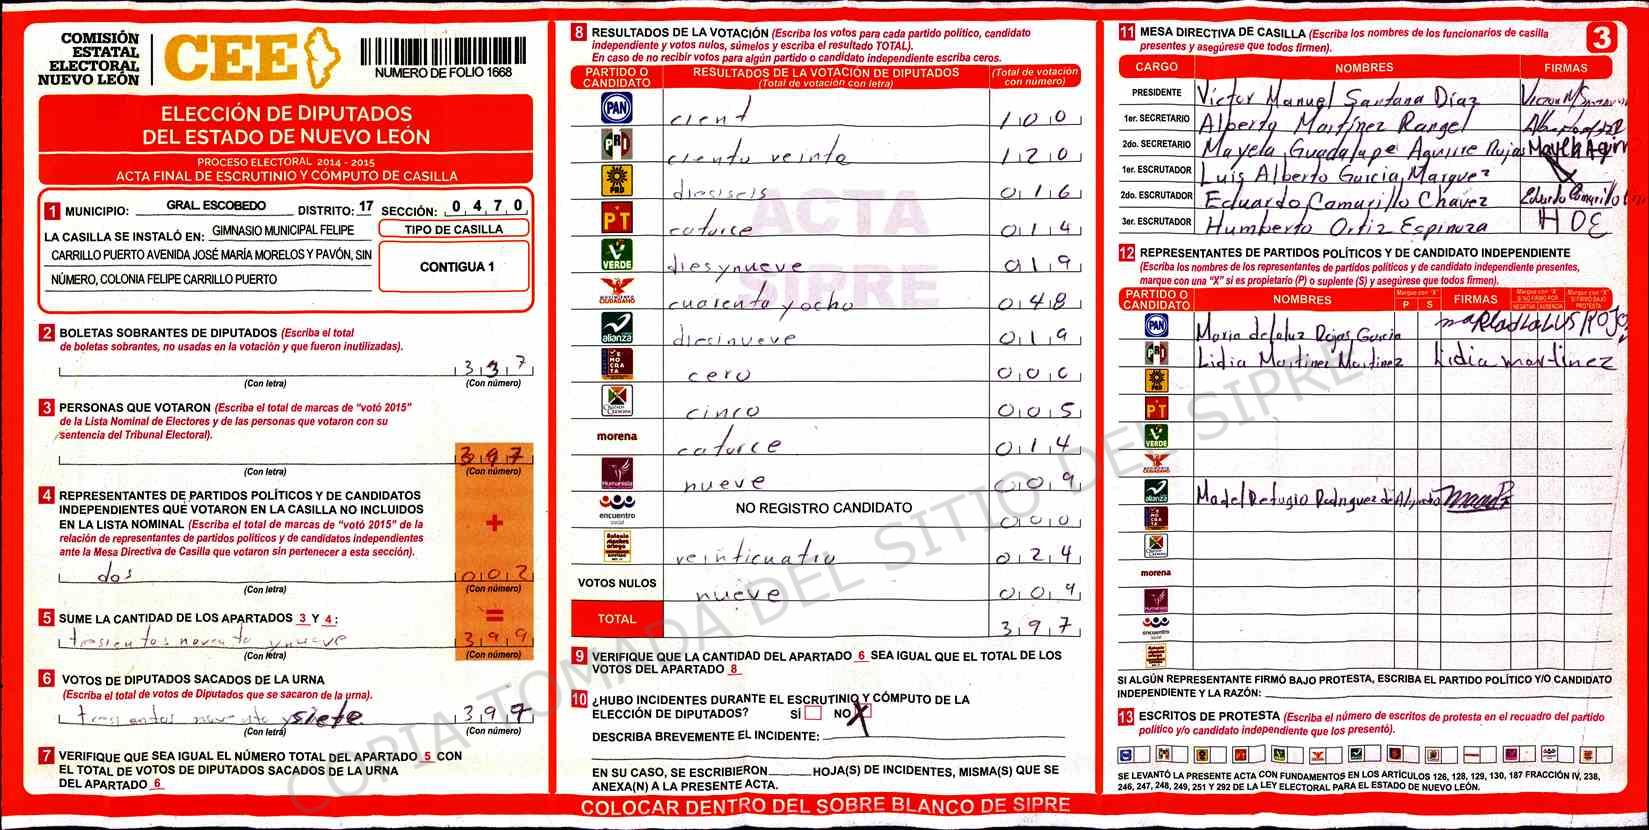 COMISIÓN
ESTATAL
ELECTORAL
NUEVO LEÓN
CEE
NUMERO DE FOLIO 1668
ELECCIÓN DE DIPUTADOS
DEL ESTADO DE NUEVO LEÓN
PROCESO ELECTORAL 2014 - 2015
ACTA FINAL DE ESCRUTINIO Y CÓMPUTO DE CASILLA
1 MUNICIPIO: GRAL. ESCOBEDO DISTRITO: 17 SECCIÓN: 0 4 7 0
LA CASILLA SE INSTALÓ EN: GIMNASIO MUNICIPAL FELIPE
CARRILLO PUERTO AVENIDA JOSÉ MARÍA MORELOS Y PAVÓN, SIN
NÚMERO, COLONIA FELIPE CARRILLO PUERTO
TIPO DE CASILLA
CONTIGUA 1
2 BOLETAS SOBRANTES DE DIPUTADOS (Escriba el total
de boletas sobrantes, no usadas en la votación y que fueron inutilizadas).
337
(Con letra) (Con número)
3 PERSONAS QUE VOTARON (Escriba el total de marcas de "votó 2015"
de la Lista Nominal de Electores y de las personas que votaron con su
sentencia del Tribunal Electoral).
397
(Con letra) (Con número)
4 REPRESENTANTES DE PARTIDOS POLÍTICOS Y DE CANDIDATOS
INDEPENDIENTES QUE VOTARON EN LA CASILLA NO INCLUIDOS
EN LA LISTA NOMINAL (Escriba el total de marcas de "votó 2015" de la
relación de representantes de partidos politicos y de candidatos independientes
ante la Mesa Directiva de Casilla que votaron sin pertenecer a esta sección).
+
dos 002
(Con letra) (Con número)
=
5 SUME LA CANTIDAD DE LOS APARTADOS 3 Y 4:
tresientos noventa ynueve 399
(Con letra) (Con número)
6 VOTOS DE DIPUTADOS SACADOS DE LA URNA
(Escriba el total de votos de Diputados que se sacaron de la urna).
noventa ysiete 397
(Con letra) (Con número)
7 VERIFIQUE QUE SEA IGUAL EL NÚMERO TOTAL DEL APARTADO 5 CON
EL TOTAL DE VOTOS DE DIPUTADOS SACADOS DE LA URNA
DEL APARTADO 6
8 RESULTADOS DE LA VOTACIÓN (Escriba los votos para cada partido político, candidato
independiente y votos nulos, súmelos y escriba el resultado TOTAL).
En caso de no recibir votos para algún partido o candidato independiente escriba ceros.
PARTIDO O CANDIDATO RESULTADOS DE LA VOTACIÓN DE DIPUTADOS (Total de votación con letra) (Total de votación con número)
PAN cient 100
PRI ciento veinte 120
PRD dieciseis 016
PT catorce 014
VERDE diesynueve 019
MOVIMIENTO CIUDADANO cuarenta y ocho 048
alianza diesinueve 019
DEMOCRATA cero 000
cinco 005
morena catorce 014
Humanista nueve 009
encuentro social NO REGISTRO CANDIDATO 000
veinticuatro 024
VOTOS NULOS nueve 009
TOTAL 397
9 VERIFIQUE QUE LA CANTIDAD DEL APARTADO 6 SEA IGUAL QUE EL TOTAL DE LOS
VOTOS DEL APARTADO 8
10 ¿HUBO INCIDENTES DURANTE EL ESCRUTINIO Y CÓMPUTO DE LA
ELECCIÓN DE DIPUTADOS? SÍ NO X
DESCRIBA BREVEMENTE EL INCIDENTE:
EN SU CASO, SE ESCRIBIERON HOJA(S) DE INCIDENTES, MISMA(S) QUE SE
ANEXA(N) A LA PRESENTE ACTA.
COLOCAR DENTRO DEL SOBRE BLANCO DE SIPRE
ACTA
SIPRE
COPIA TOMADA DEL SITIO DEL SIPRE
11 MESA DIRECTIVA DE CASILLA (Escriba los nombres de los funcionarios de casilla
presentes y asegúrese que todos firmen).
3
CARGO NOMBRES FIRMAS
PRESIDENTE Victor Manuel Santana Díaz
1er. SECRETARIO Alberto Martínez Rangel
2do. SECRETARIO Mayela Guadalupe Aguirre Rojas Mayela Aguirr
1er. ESCRUTADOR Luis Alberto Garcia Marquez
2do. ESCRUTADOR Eduardo Camarillo Chavez Eduardo Camarillo
3er. ESCRUTADOR Humberto Ortiz Espinoza H O E
12 REPRESENTANTES DE PARTIDOS POLÍTICOS Y DE CANDIDATO INDEPENDIENTE
(Escriba los nombres de los representantes de partidos políticos y de candidato independiente presentes,
marque con una "X" si es propietario (P) o suplente (S) y asegúrese que todos firmen).
PARTIDO O CANDIDATO NOMBRES Marque con "X" P S FIRMAS Marque con "X" SI NO FIRMÓ POR NEGATIVA AUSENCIA Marque con "X" SI FIRMÓ BAJO PROTESTA
PAN Maria de la luz Rojas Garcia
PRI Lidia Martinez Martinez Lidia martinez
PRD
PT
VERDE
alianza Ma del Refugio Rodriguez de
morena
Humanista
encuentro social
SI ALGÚN REPRESENTANTE FIRMÓ BAJO PROTESTA, ESCRIBA EL PARTIDO POLÍTICO Y/O CANDIDATO
INDEPENDIENTE Y LA RAZÓN:
13 ESCRITOS DE PROTESTA (Escriba el número de escritos de protesta en el recuadro del partido
político y/o candidato independiente que los presentó).
SE LEVANTÓ LA PRESENTE ACTA CON FUNDAMENTOS EN LOS ARTÍCULOS 126, 128, 129, 130, 187 FRACCIÓN IV, 238,
246, 247, 248, 249, 251 Y 292 DE LA LEY ELECTORAL PARA EL ESTADO DE NUEVO LEÓN.